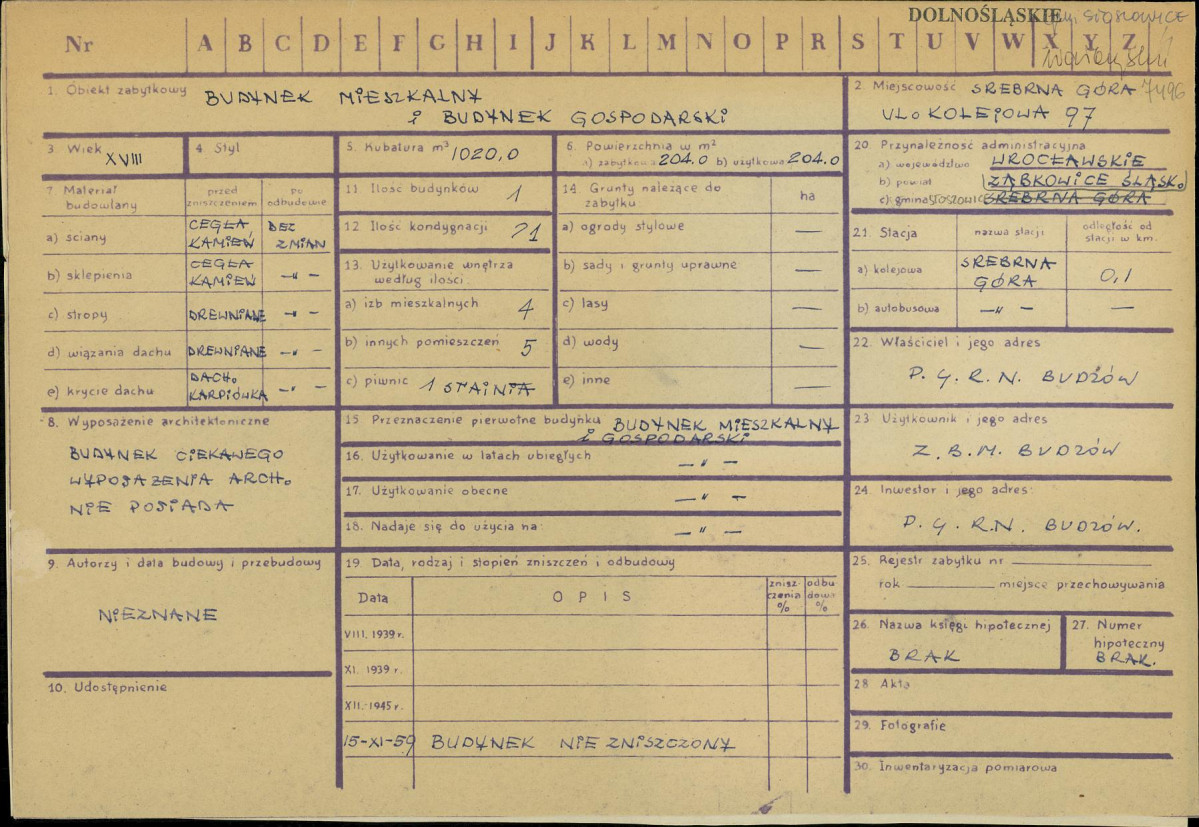 DOLNOŚLĄSKIE
Nr A B C D E F G H I J K L M N O P R S T U V W X Y Z
1. Obiekt zabytkowy BUDYNEK MIESZKALNY
i BUDYNEK GOSPODARSKI
2. Miejscowość SREBRNA GÓRA 7496
UL. KOLEJOWA 97
3. Wiek XVIII
4. Styl
5. Kubatura m³ 1020,0
6. Powierzchnia w m²
a) zabytkowa 204.0 b) użytkowa 204.0
20. Przynależność administracyjna
a) województwo WROCŁAWSKIE
b) powiat ZĄBKOWICE ŚLĄSK.
c) gmina STOSZOWICE SREBRNA GÓRA
7. Materiał budowlany
przed zniszczeniem
po odbudowie
a) ściany CEGŁA KAMIEŃ BEZ ZMIAN
b) sklepienia CEGŁA KAMIEŃ —„—
c) stropy DREWNIANE —„—
d) wiązania dachu DREWNIANE —„—
e) krycie dachu DACH. KARPIÓWKA —„—
11. Ilość budynków 1
12. Ilość kondygnacji 21
13. Użytkowanie wnętrza
według ilości:
a) izb mieszkalnych 4
b) innych pomieszczeń 5
c) piwnic 1 STAJNIA
14. Grunty należące do
zabytku
ha
a) ogrody stylowe —
b) sady i grunty uprawne —
c) lasy —
d) wody —
e) inne —
21. Stacja
nazwa stacji
odległość od
stacji w km.
a) kolejowa SREBRNA GÓRA 0,1
b) autobusowa —„— —
22. Właściciel i jego adres
P. G. R. N. BUDZÓW
8. Wyposażenie architektoniczne
BUDYNEK CIEKAWEGO
WYPOSAŻENIA ARCH.
NIE POSIADA
15. Przeznaczenie pierwotne budynku BUDYNEK MIESZKALNY
i GOSPODARSKI
16. Użytkowanie w latach ubiegłych —„—
17. Użytkowanie obecne —„—
18. Nadaje się do użycia na: —„—
23. Użytkownik i jego adres
Z. B. M. BUDZÓW
24. Inwestor i jego adres
P. G. R. N. BUDZÓW.
9. Autorzy i data budowy i przebudowy
NIEZNANE
10. Udostępnienie
19. Data, rodzaj i stopień zniszczeń i odbudowy
Data
OPIS
znisz-
czenia
%
odbu
dowa
%
VIII. 1939 r.
XI. 1939 r.
XII.-1945 r.
15-XI-59 BUDYNEK NIE ZNISZCZONY
25. Rejestr zabytku nr
rok miejsce przechowywania
26. Nazwa księgi hipotecznej
BRAK
27. Numer
hipoteczny
BRAK.
28. Akta
29. Fotografie
30. Inwentaryzacja pomiarowa